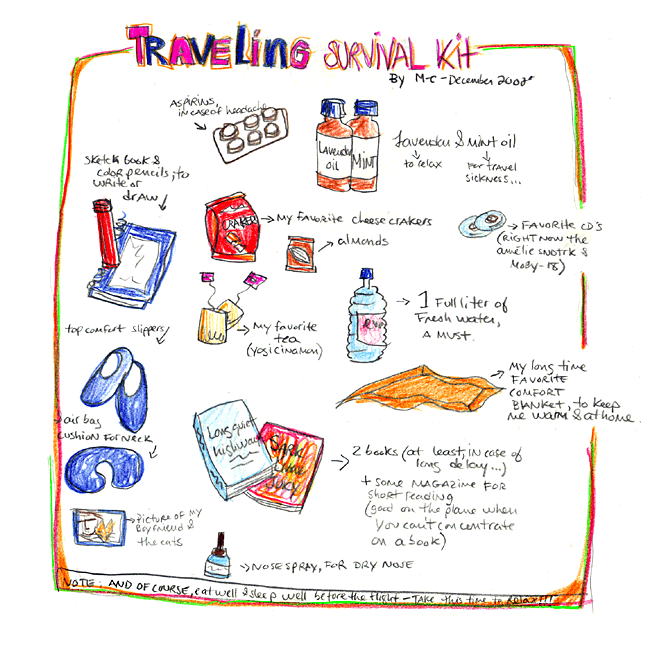 TRAVELING SURVIVAL KIT
By M-C - December 2002
ASPIRINS,
in case of headache
Lavender
oil
MINT
Lavender & mint oil
to relax
For travel
sickness...
sketch book &
color pencils, to
write or
draw
CRAKERS
My favorite cheese crakers
almonds
FAVORITE CD'S
(RIGHT NOW THE
amélie SNDTRK &
MOBY-18)
My favorite
tea
(yogi cinamon)
evi
1 Full liter of
Fresh water,
A MUST.
top comfort slippers
My long time
FAVORITE
COMFORT
BLANKET, to keep
me warm & at home.
air bag
cushion for neck
Long quiet
highway
SARK
2 books (at least, in case of
long delay...)
+ some MAGAZINE FOR
short reading
(good on the plane when
you can't concentrate
on a book)
PICTURE OF MY
Boyfriend &
the cats
NOSE SPRAY, FOR DRY NOSE
NOTE: AND OF COURSE, eat well & sleep well before the flight - TAKE this time to RELAX!!!